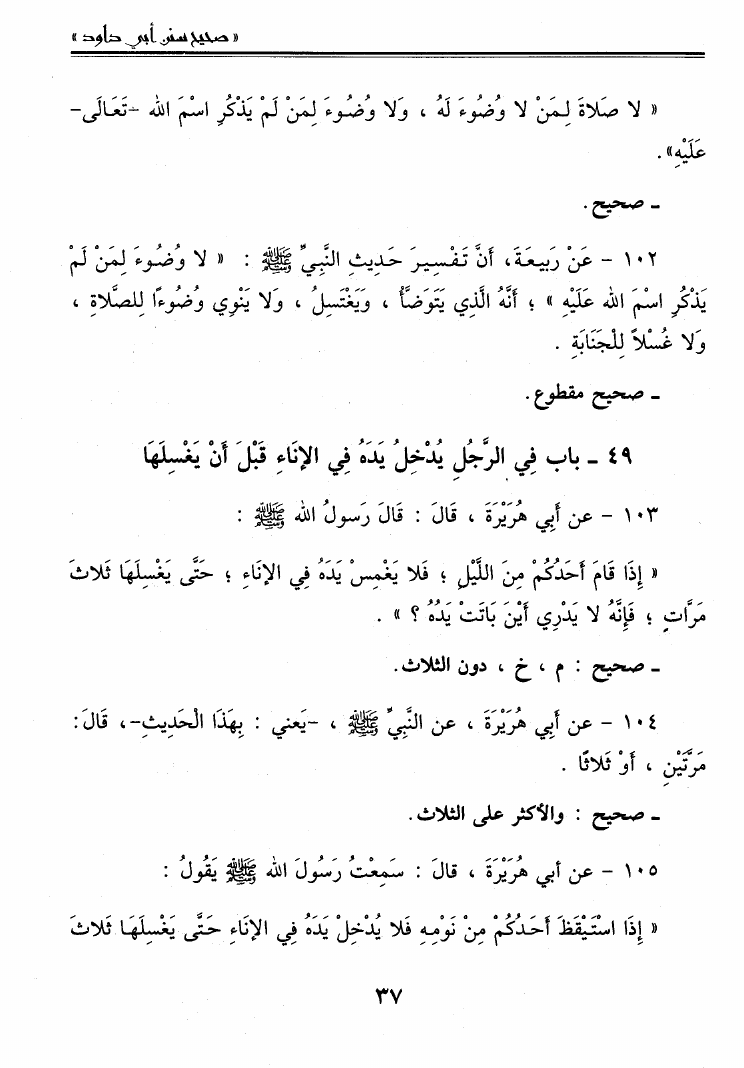 « صحيح سنن أبي داود »
« لا صَلاةَ لِمَنْ لا وُضُوءَ لَهُ ، وَلا وُضُوءَ لِمَنْ لَمْ يَذْكُرِ اسْمَ الله -تَعَالَى-
عَلَيْهِ» .
ـ صحيح .
١٠٢ - عَنْ رَبِيعَةَ، أَنَّ تَفْسِيرَ حَدِيثِ النَّبِيِّ ﷺ : « لا وُضُوءَ لِمَنْ لَمْ
يَذْكُرِ اسْمَ الله عَلَيْهِ » ؛ أَنَّهُ الَّذِي يَتَوَضَّأُ ، وَيَغْتَسِلُ ، وَلا يَنْوِي وُضُوءًا لِلصَّلاةِ ،
وَلا غُسْلاً لِلْجَنَابَةِ .
ـ صحيح مقطوع .
٤٩ ـ باب فِي الرَّجُلِ يُدْخِلُ يَدَهُ فِي الإِنَاءِ قَبْلَ أَنْ يَغْسِلَهَا
١٠٣ - عن أَبِي هُرَيْرَةَ ، قَالَ : قَالَ رَسولُ الله ﷺ :
« إِذَا قَامَ أَحَدُكُمْ مِنَ اللَّيْلِ ؛ فَلا يَغْمِسْ يَدَهُ فِي الإِنَاءِ ؛ حَتَّى يَغْسِلَهَا ثَلاثَ
مَرَّاتٍ ؛ فَإِنَّهُ لا يَدْرِي أَيْنَ بَاتَتْ يَدُهُ ؟ » .
ـ صحيح : م ، خ ، دون الثلاث .
١٠٤ - عن أَبِي هُرَيْرَةَ ، عن النَّبِيِّ ﷺ ، -يَعني : بِهَذَا الْحَدِيثِ-، قَالَ:
مَرَّتَيْنِ ، أَوْ ثَلاثًا .
ـ صحيح : والأكثر على الثلاث .
١٠٥ - عن أبي هُرَيْرَةَ ، قالَ : سَمِعْتُ رَسُولَ الله ﷺ يَقُولُ :
« إِذَا اسْتَيْقَظَ أَحَدُكُمْ مِنْ نَوْمِهِ فَلا يُدْخِلْ يَدَهُ فِي الإِنَاءِ حَتَّى يَغْسِلَهَا ثَلاثَ
٣٧